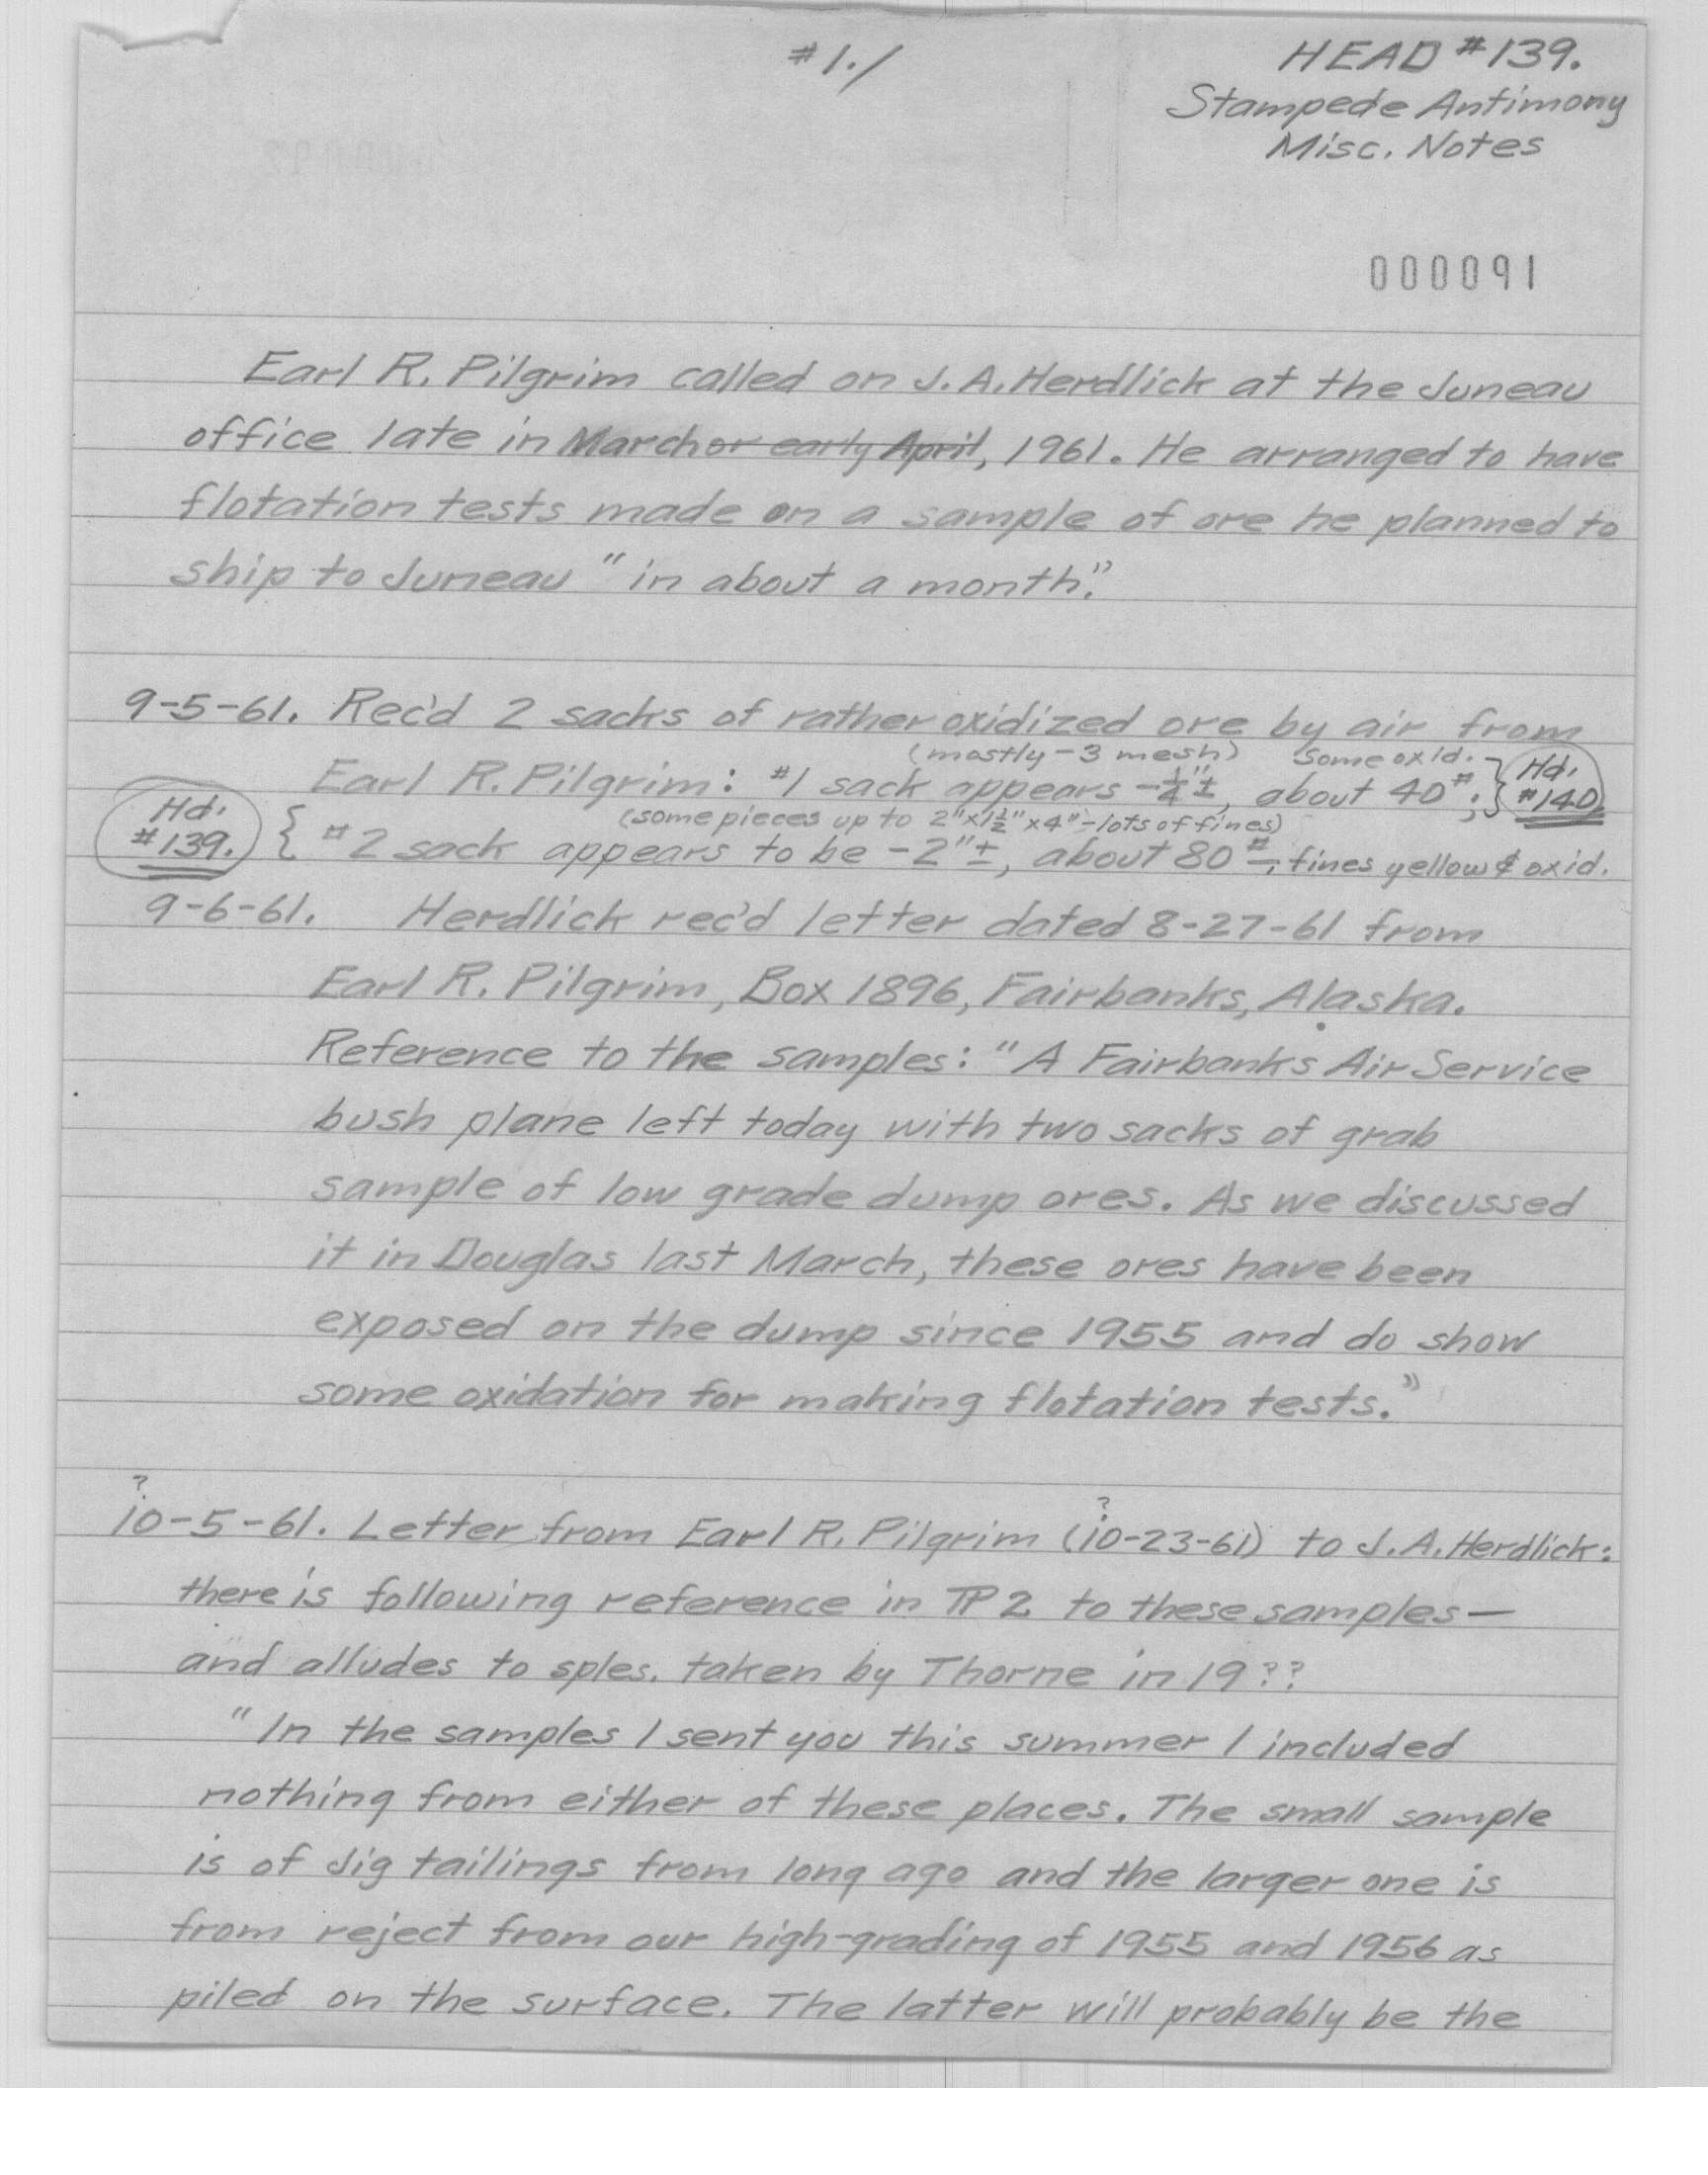 #1./
HEAD #139.
Stampede Antimony
Misc. Notes
000091
Earl R. Pilgrim called on J.A. Herdlick at the Juneau
office late in March or early April, 1961. He arranged to have
flotation tests made on a sample of ore he planned to
ship to Juneau "in about a month."
9-5-61. Rec'd 2 sacks of rather oxidized ore by air from
(mostly -3 mesh) Some oxid.
Earl R. Pilgrim: #1 sack appears -1/4"±, about 40#; } Hd. #140
(some pieces up to 2"x1½"x4"-lots of fines)
Hd. #139. { #2 sack appears to be -2"±, about 80#-; fines yellow & oxid.
9-6-61. Herdlick rec'd letter dated 8-27-61 from
Earl R. Pilgrim, Box 1896, Fairbanks, Alaska.
Reference to the samples: "A Fairbanks Air Service
bush plane left today with two sacks of grab
sample of low grade dump ores. As we discussed
it in Douglas last March, these ores have been
exposed on the dump since 1955 and do show
some oxidation for making flotation tests."
? ?
10-5-61. Letter from Earl R. Pilgrim (10-23-61) to J.A. Herdlick:
there is following reference in TP 2 to these samples—
and alludes to sples. taken by Thorne in 19??
"In the samples I sent you this summer I included
nothing from either of these places. The small sample
is of Jig tailings from long ago and the larger one is
from reject from our high-grading of 1955 and 1956 as
piled on the surface. The latter will probably be the